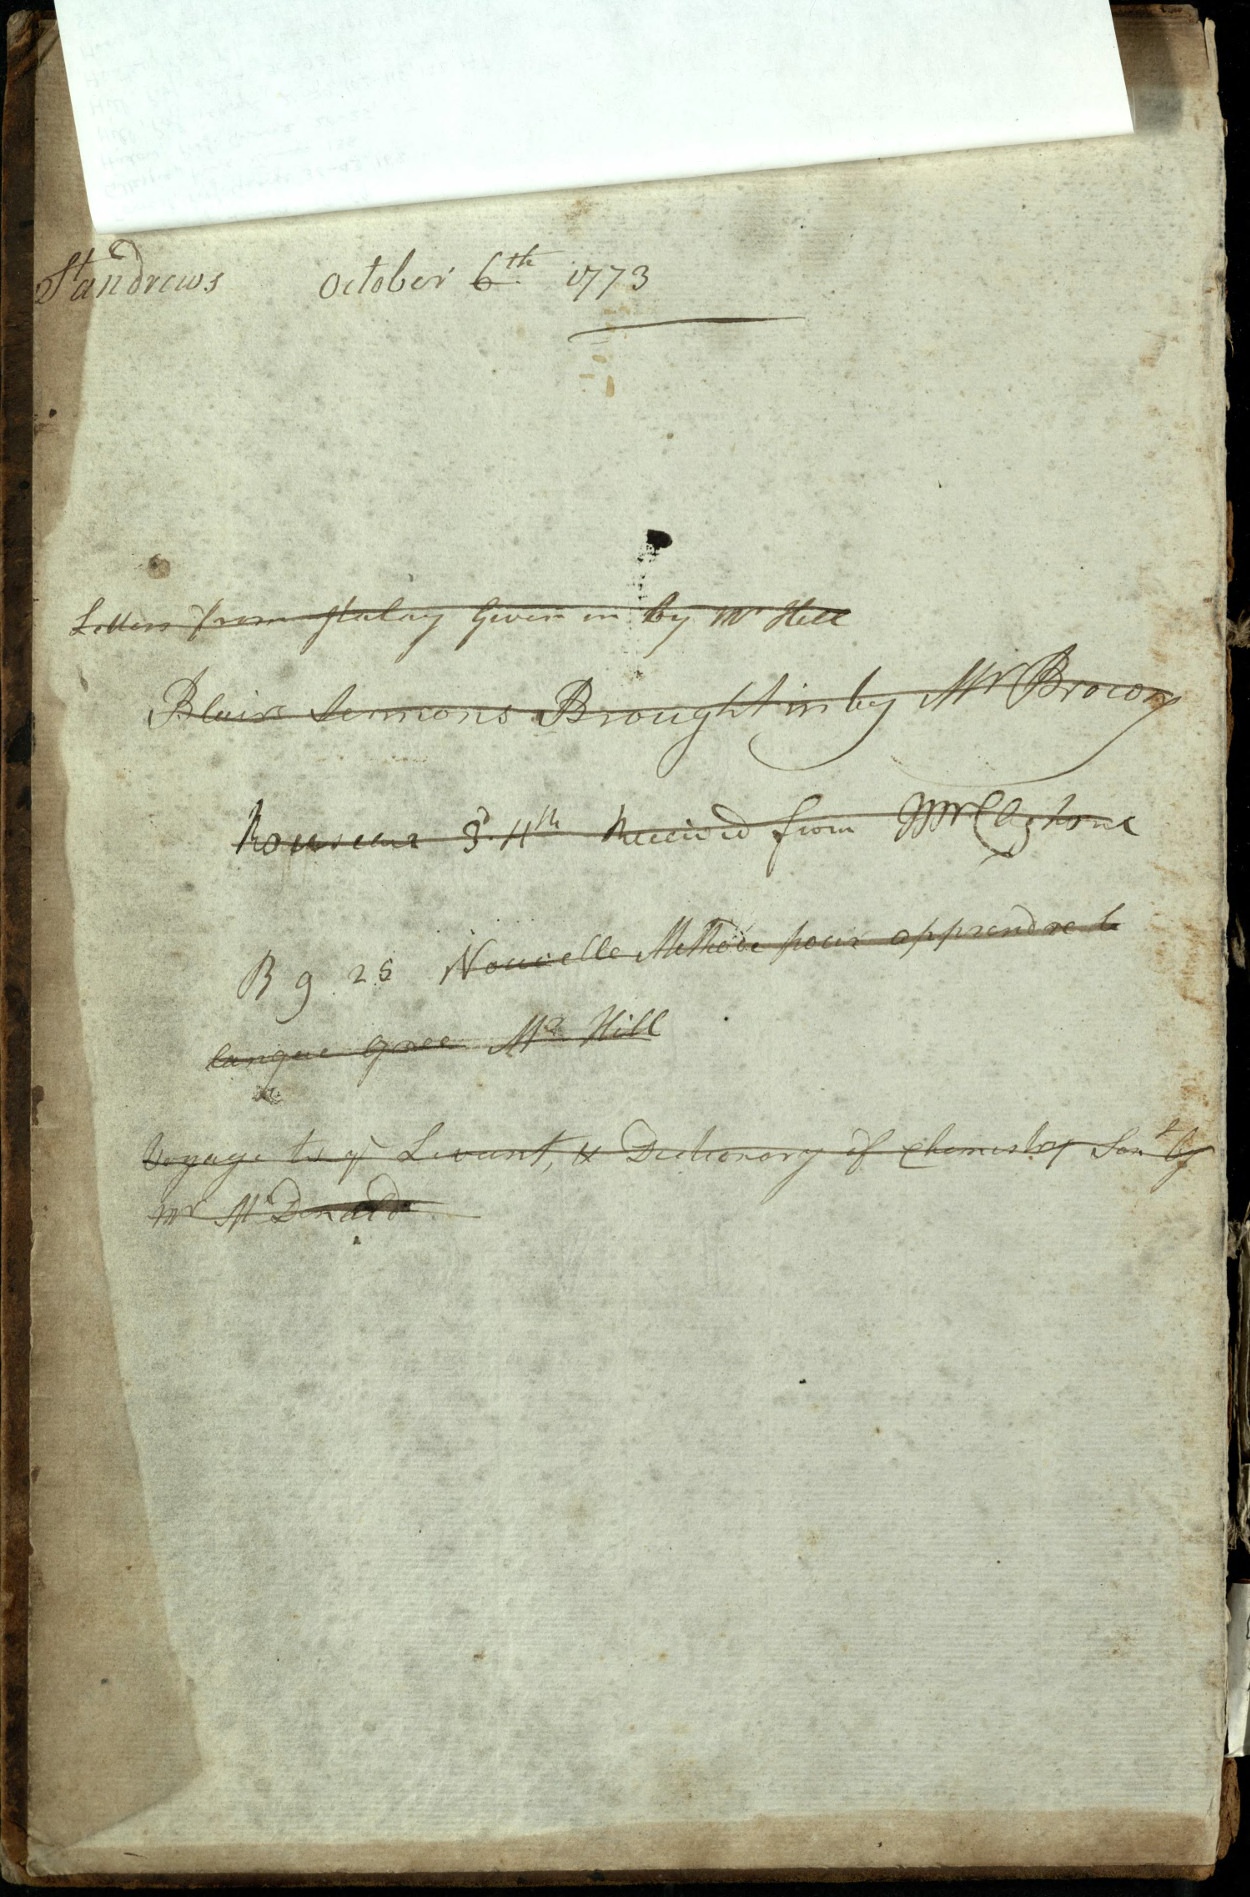 St andrews October 6th 1773
Letters from Italay Given in by Mr Hill
Blairs Sermons Brought in by Mr Brown
Rousseau 3d. 4th Received from Mr Cleghorne
B 9 25 Nouvelle Methode pour apprendre le
langue grec Mr Hill
Voyage to ye Levant, & Dictionary of Chemistry Sent by
Mr McDonald